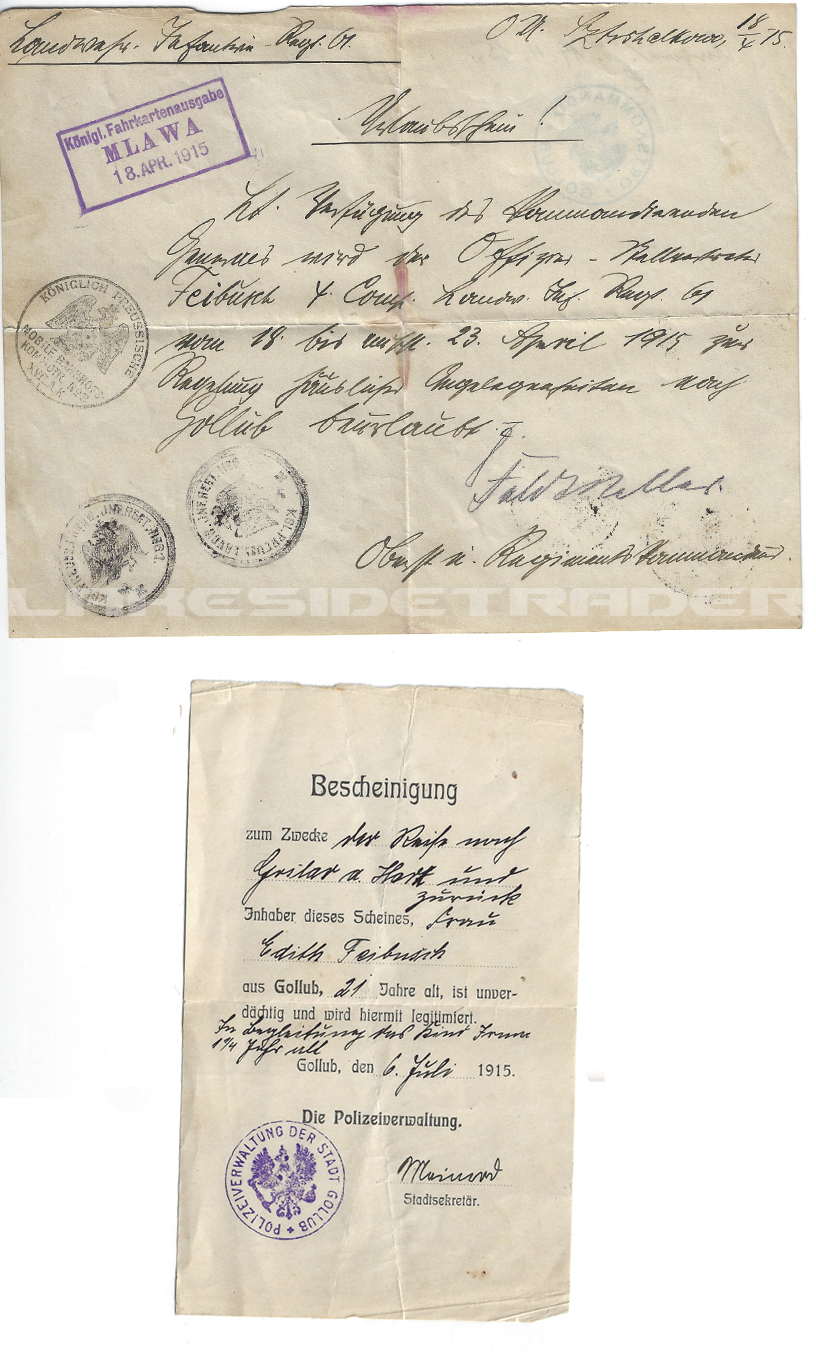 Landwehr. Infanterie-Regt. 61.
O. U. 18/4 15.
Königl. Fahrkartenausgabe
MLAWA
18. APR. 1915
Urlaubsschein!
Lt. Verfügung des Kommandierenden
Generals wird der Offizier-Stellvertreter
Feibusch 4. Comp. Landw. Inf. Regt. 61
vom 18. bis einschl. 23. April 1915 zur
Regelung häuslicher Angelegenheiten nach
Gollub beurlaubt.
KÖNIGLICH PREUSSISCHE
MOBILE BAHNHOFS
Oberst u. Regimentskommandeur.
LAKESIDETRADER
Bescheinigung
zum Zwecke der Reise nach
und
zurück
Inhaber dieses Scheines, Frau
Edith Feibusch
aus Gollub, 21 Jahre alt, ist unver-
dächtig und wird hiermit legitimiert.
In Begleitung das Kind Irma
1 1/4 Jahr alt
Gollub, den 6. Juli 1915.
Die Polizeiverwaltung.
POLIZEIVERWALTUNG DER STADT GOLLUB
Stadtsekretär.